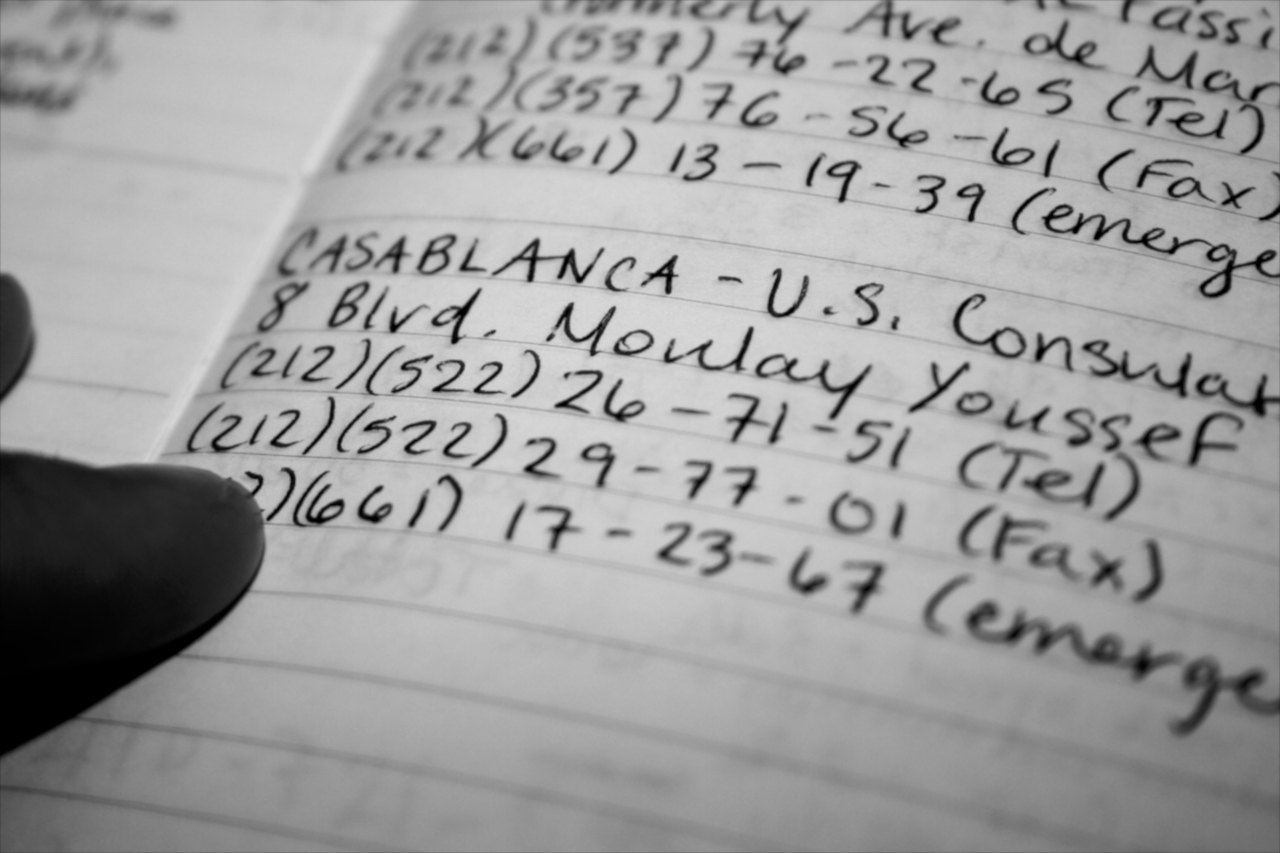 (formerly Ave. de Mar
(212)(537) 76-22-65 (Tel)
(212)(357) 76-56-61 (Fax)
(212)(661) 13-19-39 (emerge
CASABLANCA - U.S. Consulat
8 Blvd. Moulay Youssef
(212)(522) 26-71-51 (Tel)
(212)(522) 29-77-01 (Fax)
2)(661) 17-23-67 (emerge